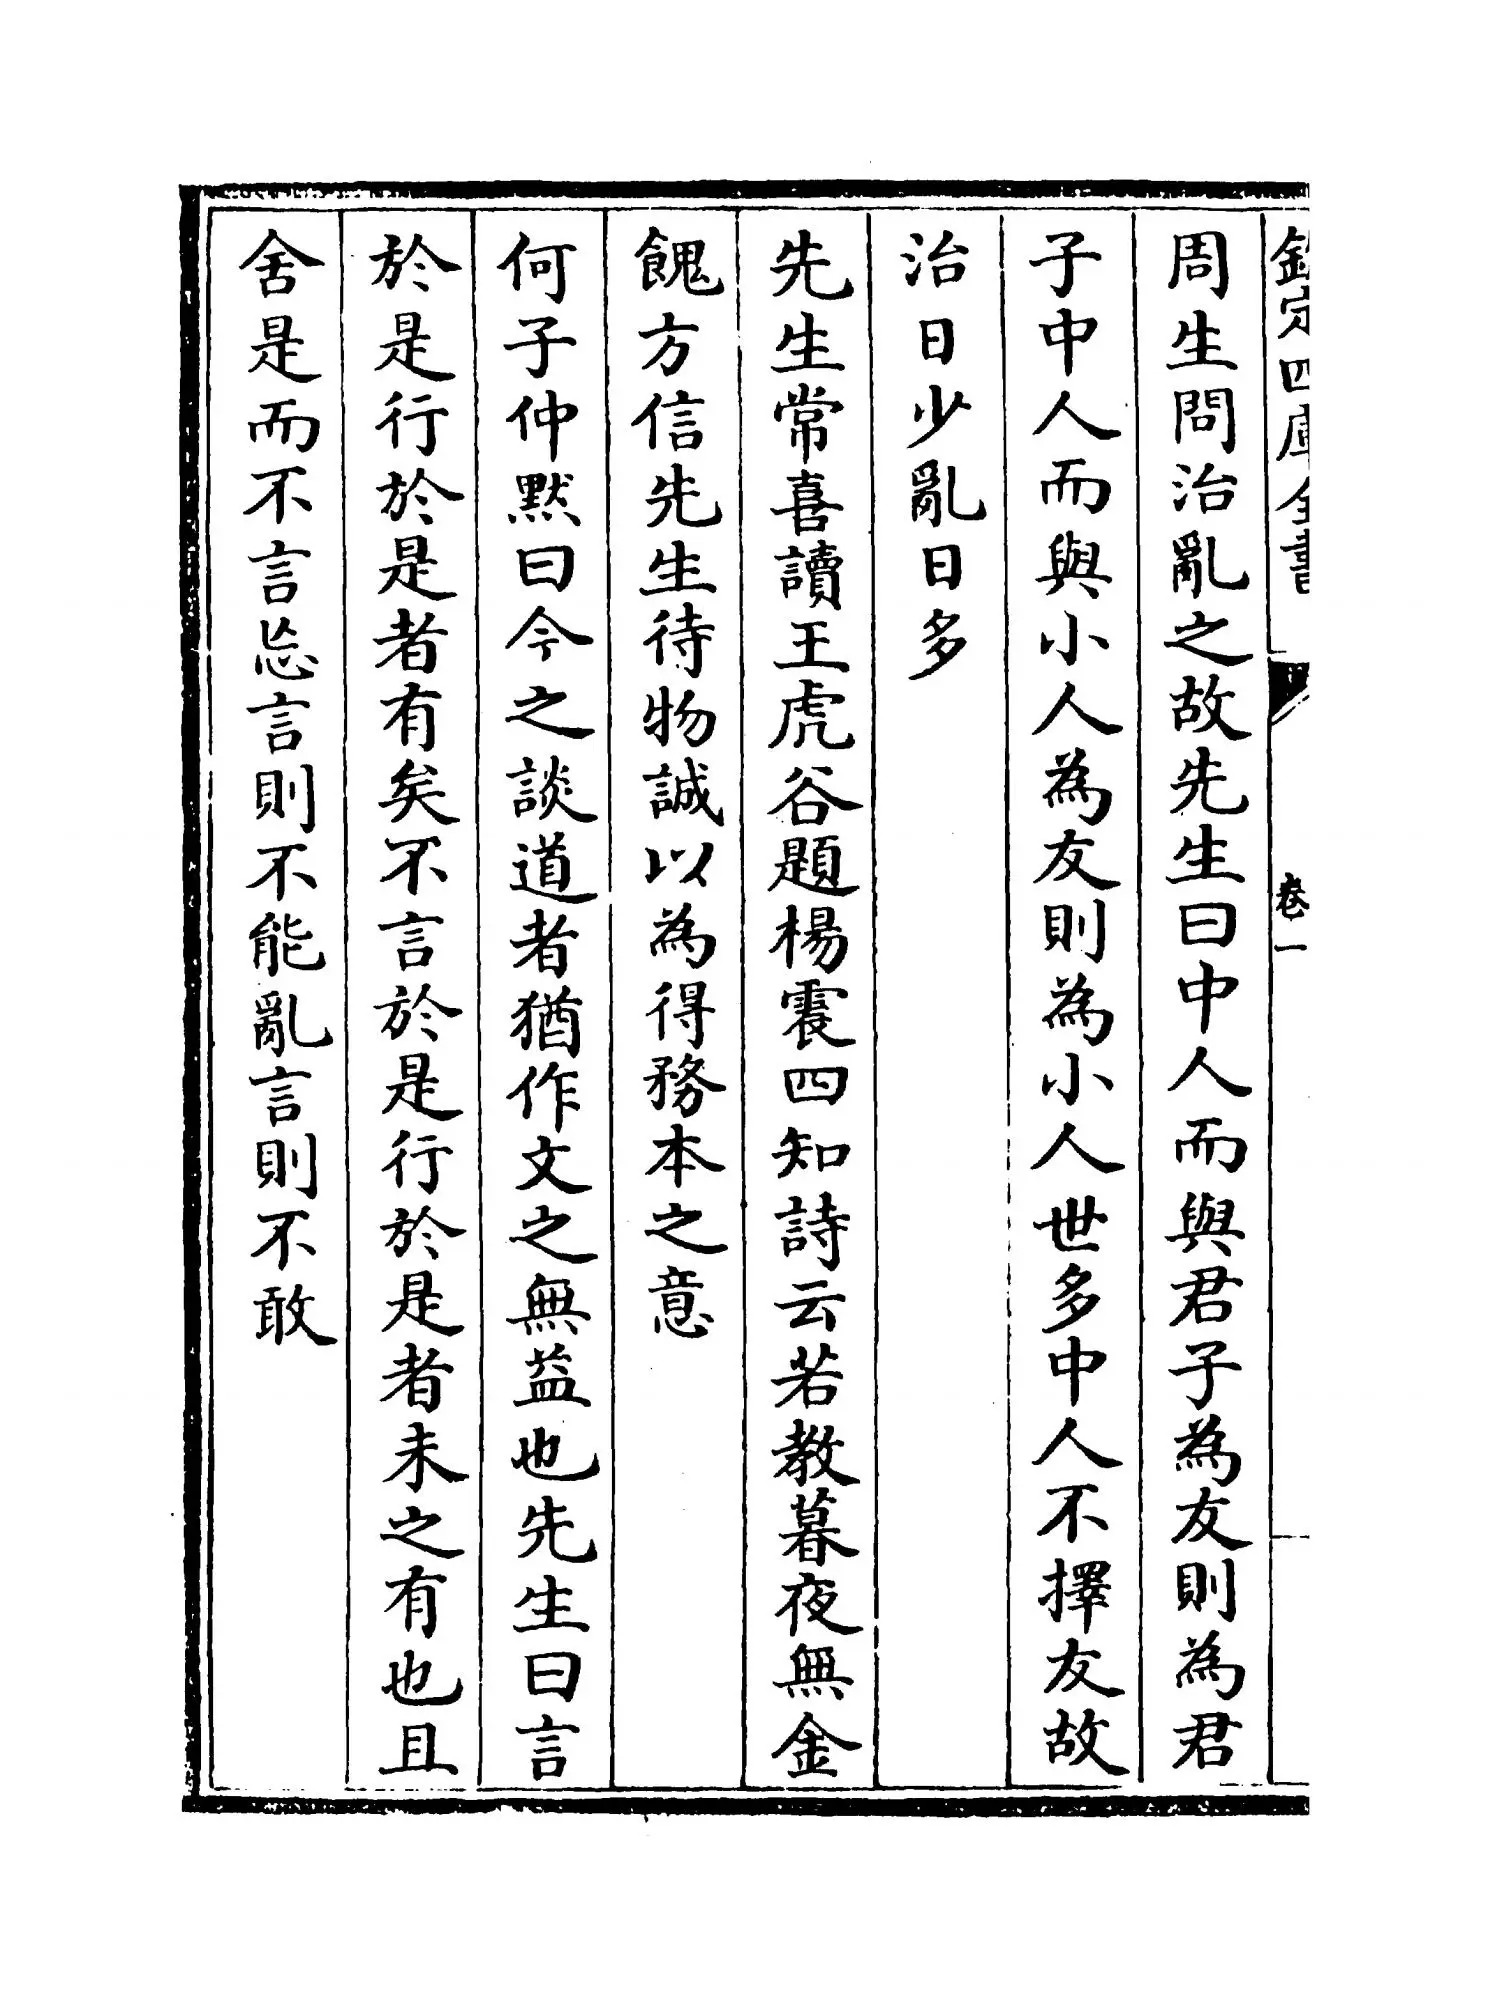 欽定四庫全書
卷一
周生問治亂之故先生曰中人而與君子為友則為君
子中人而與小人為友則為小人世多中人不擇友故
治日少亂日多
先生常喜讀王虎谷題楊震四知詩云若教暮夜無金
餽方信先生待物誠以為得務本之意
何子仲黙曰今之談道者猶作文之無益也先生曰言
於是行於是者有矣不言於是行於是者未之有也且
舍是而不言怨言則不能亂言則不敢